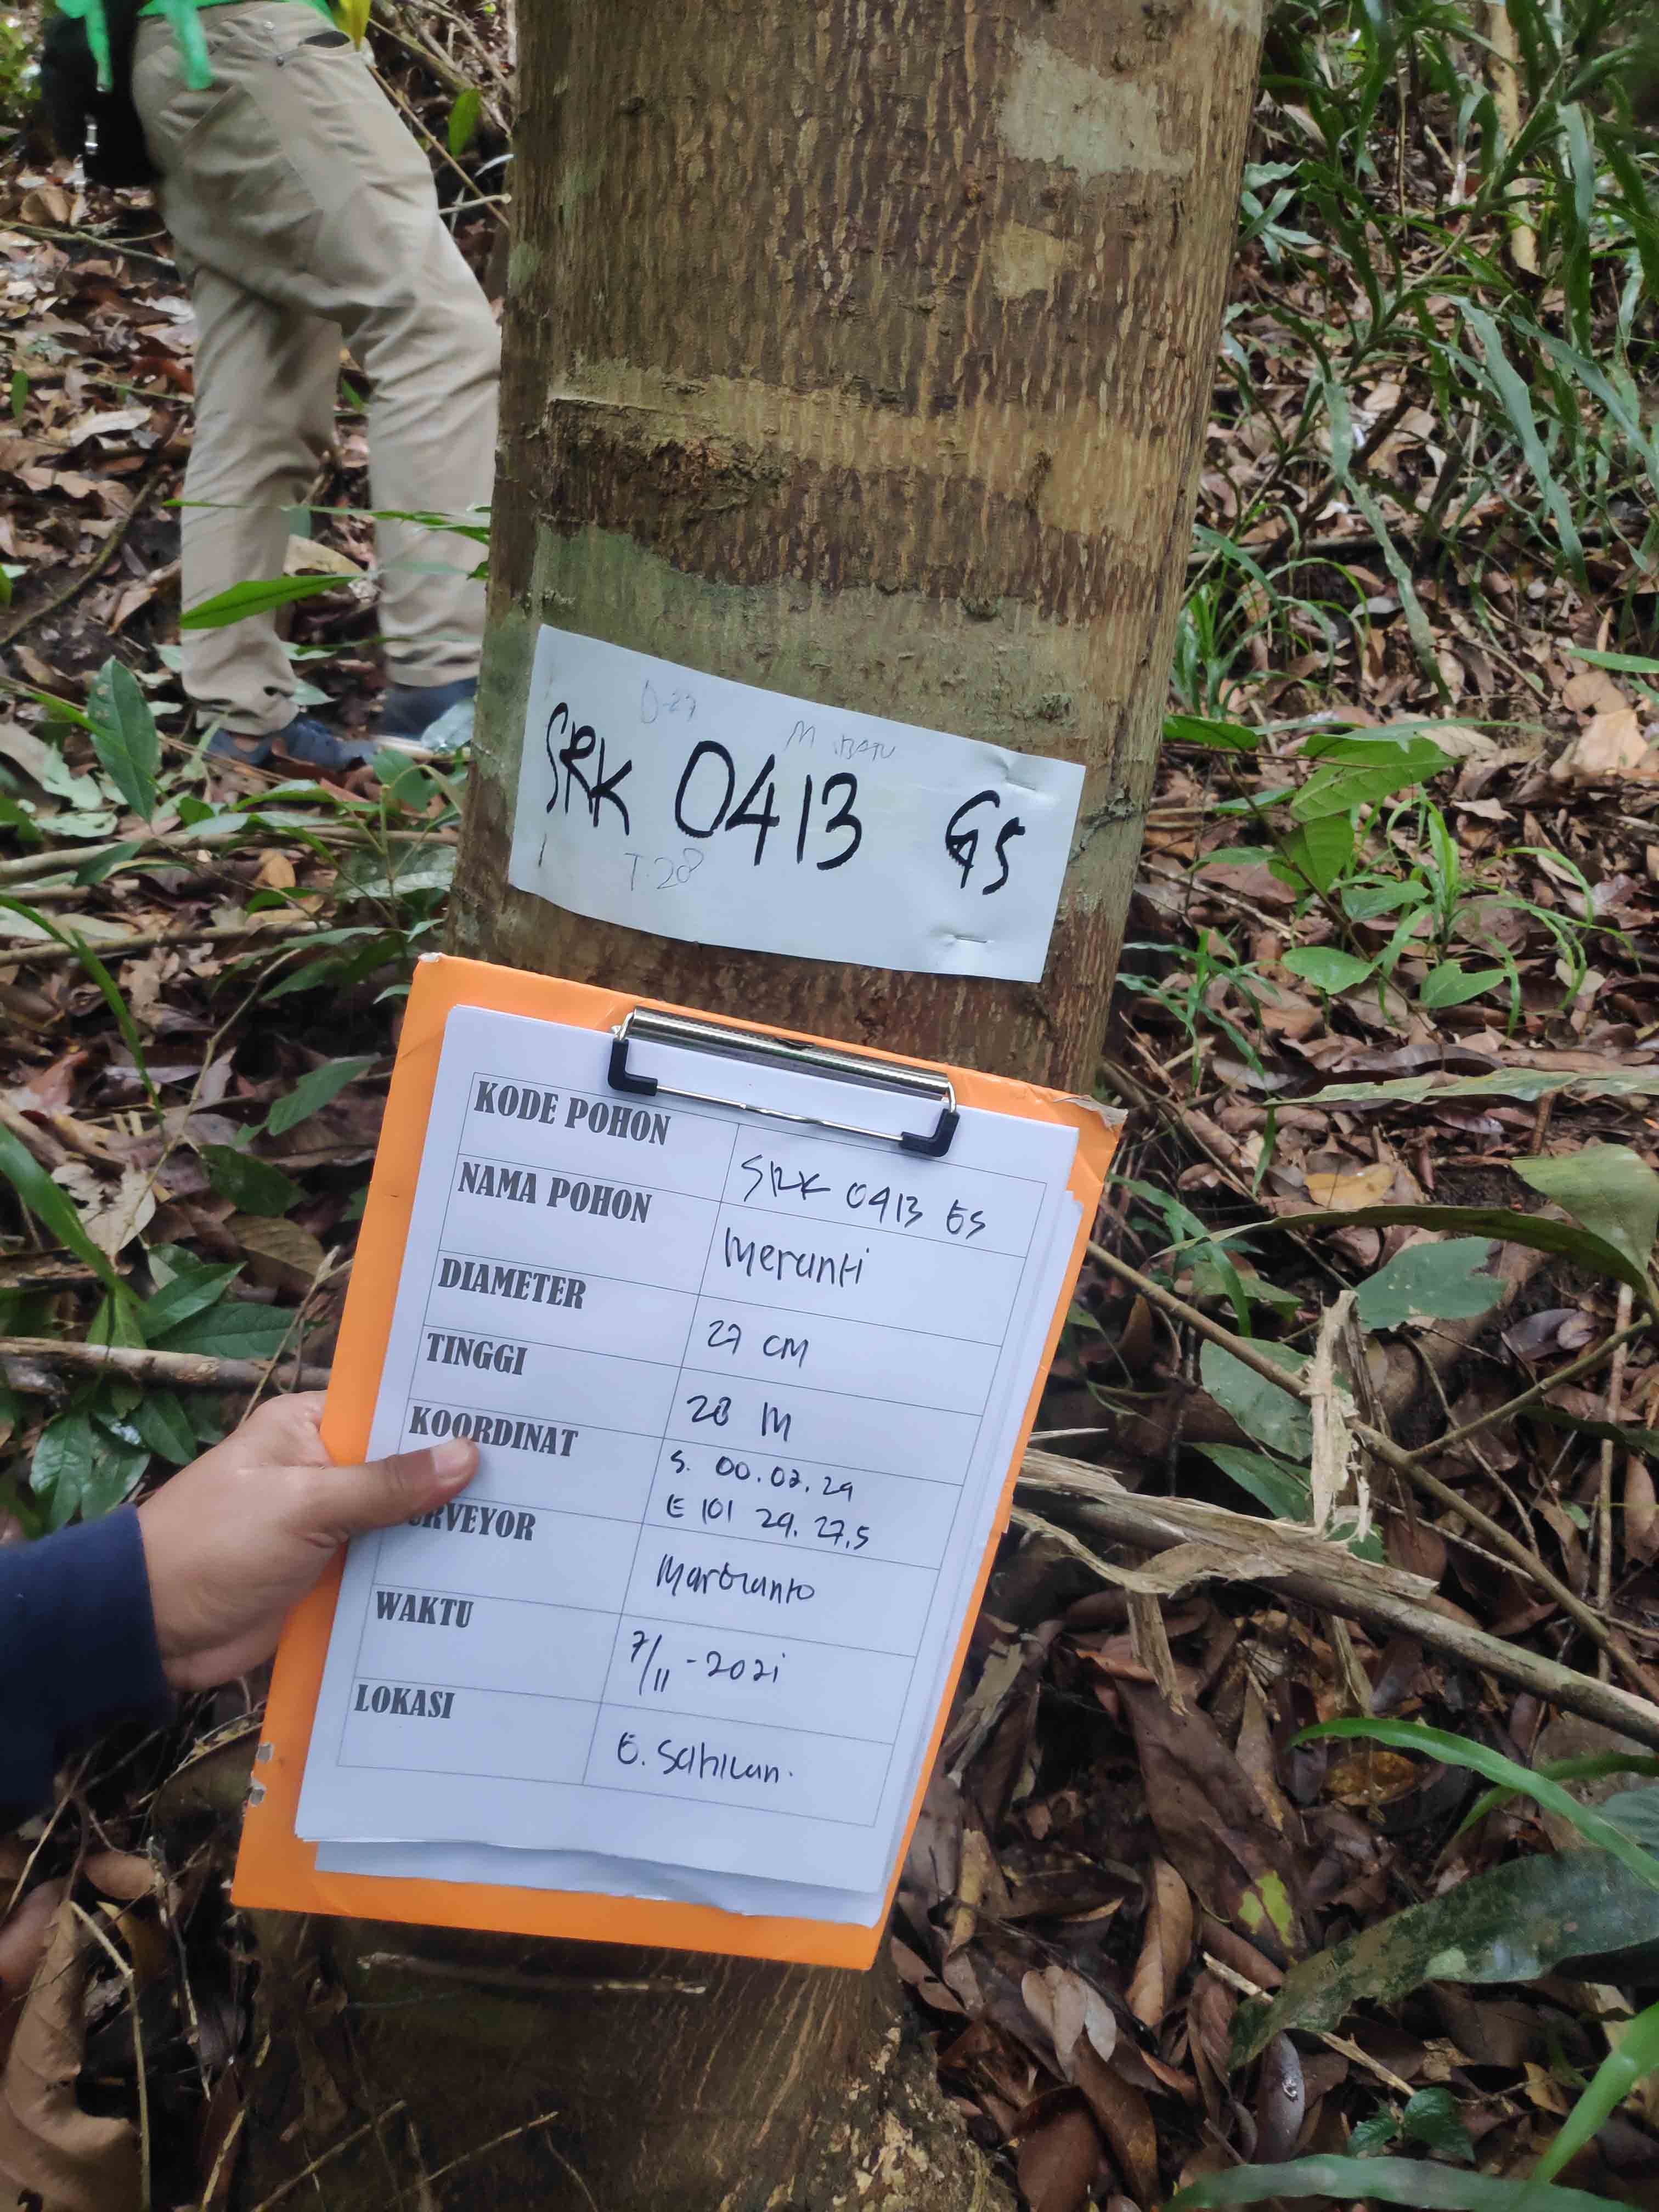 D-27
SRK 0413 GS
T.28
KODE POHON SRK 0413 GS
NAMA POHON Meranti
DIAMETER 27 CM
TINGGI 28 M
KOORDINAT S. 00.02.29
E 101 29. 27,5
RVEYOR
WAKTU 7/11-2021
LOKASI G. Sahilan.